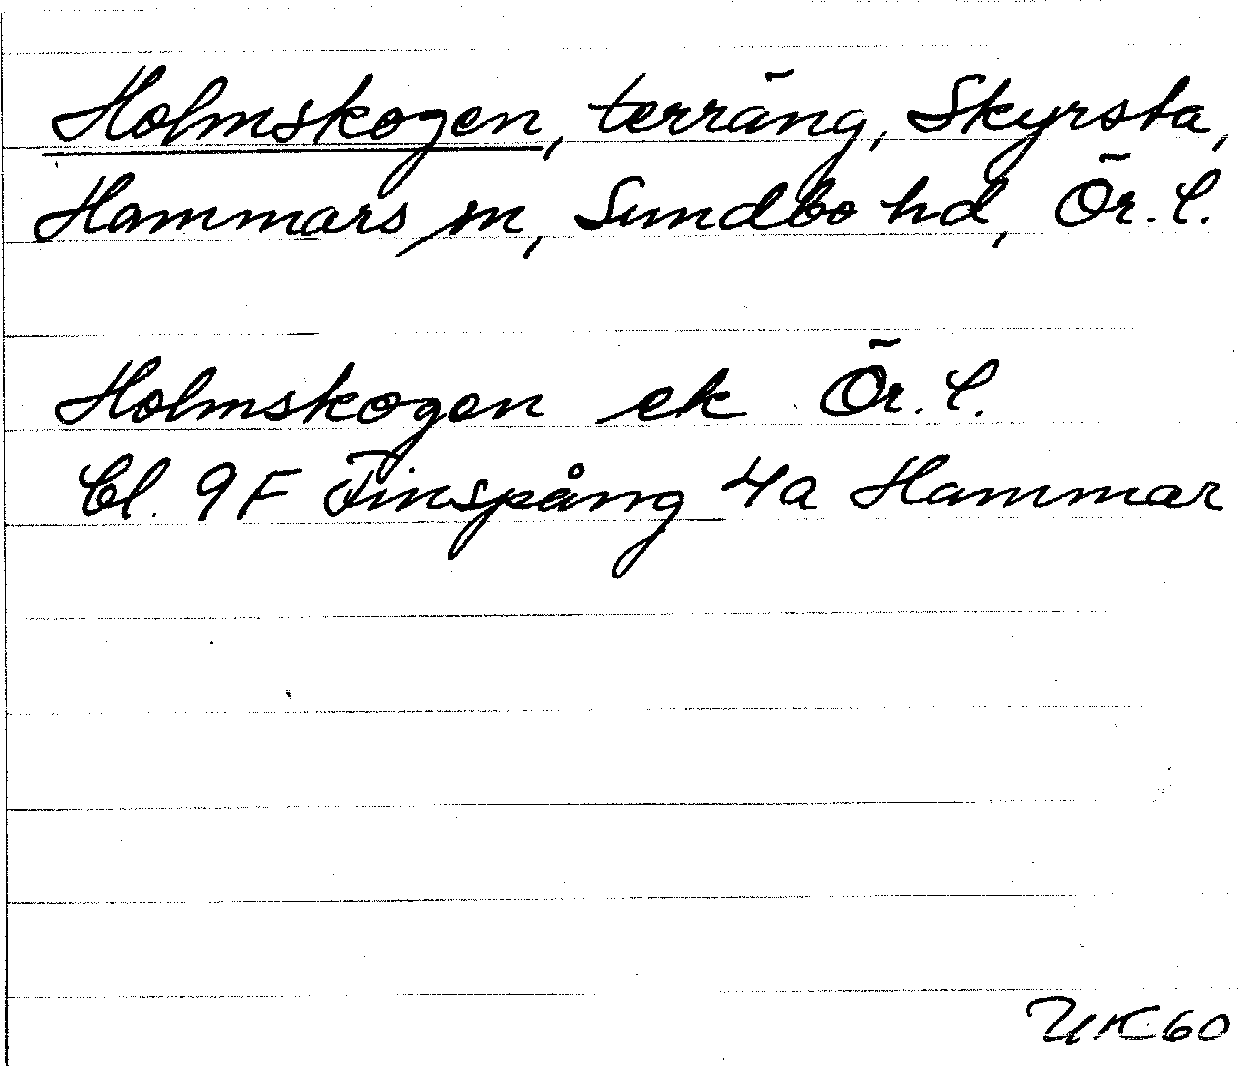 Holmskogen, terräng, Skyrsta,
Hammars sn, Sundbo hd, Ör. l.
Holmskogen ek Ör. l.
bl. 9F Finspång 4a Hammar
UK60